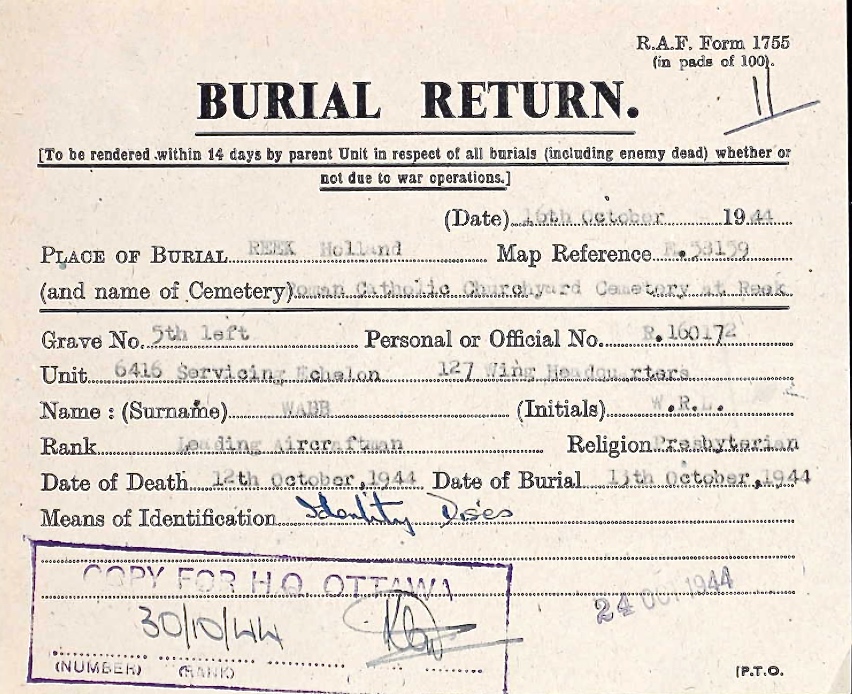 R.A.F. Form 1755
(in pads of 100).
11
BURIAL RETURN.
[To be rendered within 14 days by parent Unit in respect of all burials (including enemy dead) whether or
not due to war operations.]
(Date) 16th October 1944
PLACE OF BURIAL REEK Holland Map Reference E.53159
(and name of Cemetery) Roman Catholic Churchyard Cemetery at Reek
Grave No. 5th left Personal or Official No. R.160172
Unit 6416 Servicing Echelon 127 Wing Headquarters
Name : (Surname) WABB (Initials) W.R.L.
Rank Leading Aircraftman Religion Presbyterian
Date of Death 12th October,1944 Date of Burial 13th October,1944
Means of Identification Identity Discs
COPY FOR H.Q. OTTAWA
30/10/44
24 OCT 1944
(NUMBER) (RANK)
[P.T.O.